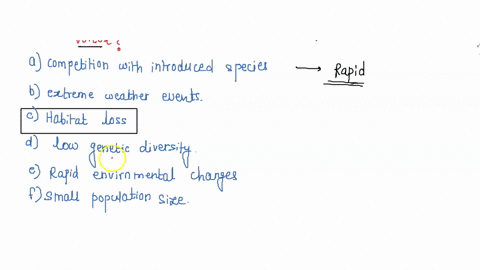 a) Competition with introduced species → Rapid
b) extreme weather events.
c) Habitat loss
d) low genetic diversity.
e) Rapid envirnmental changes
f) small population size.